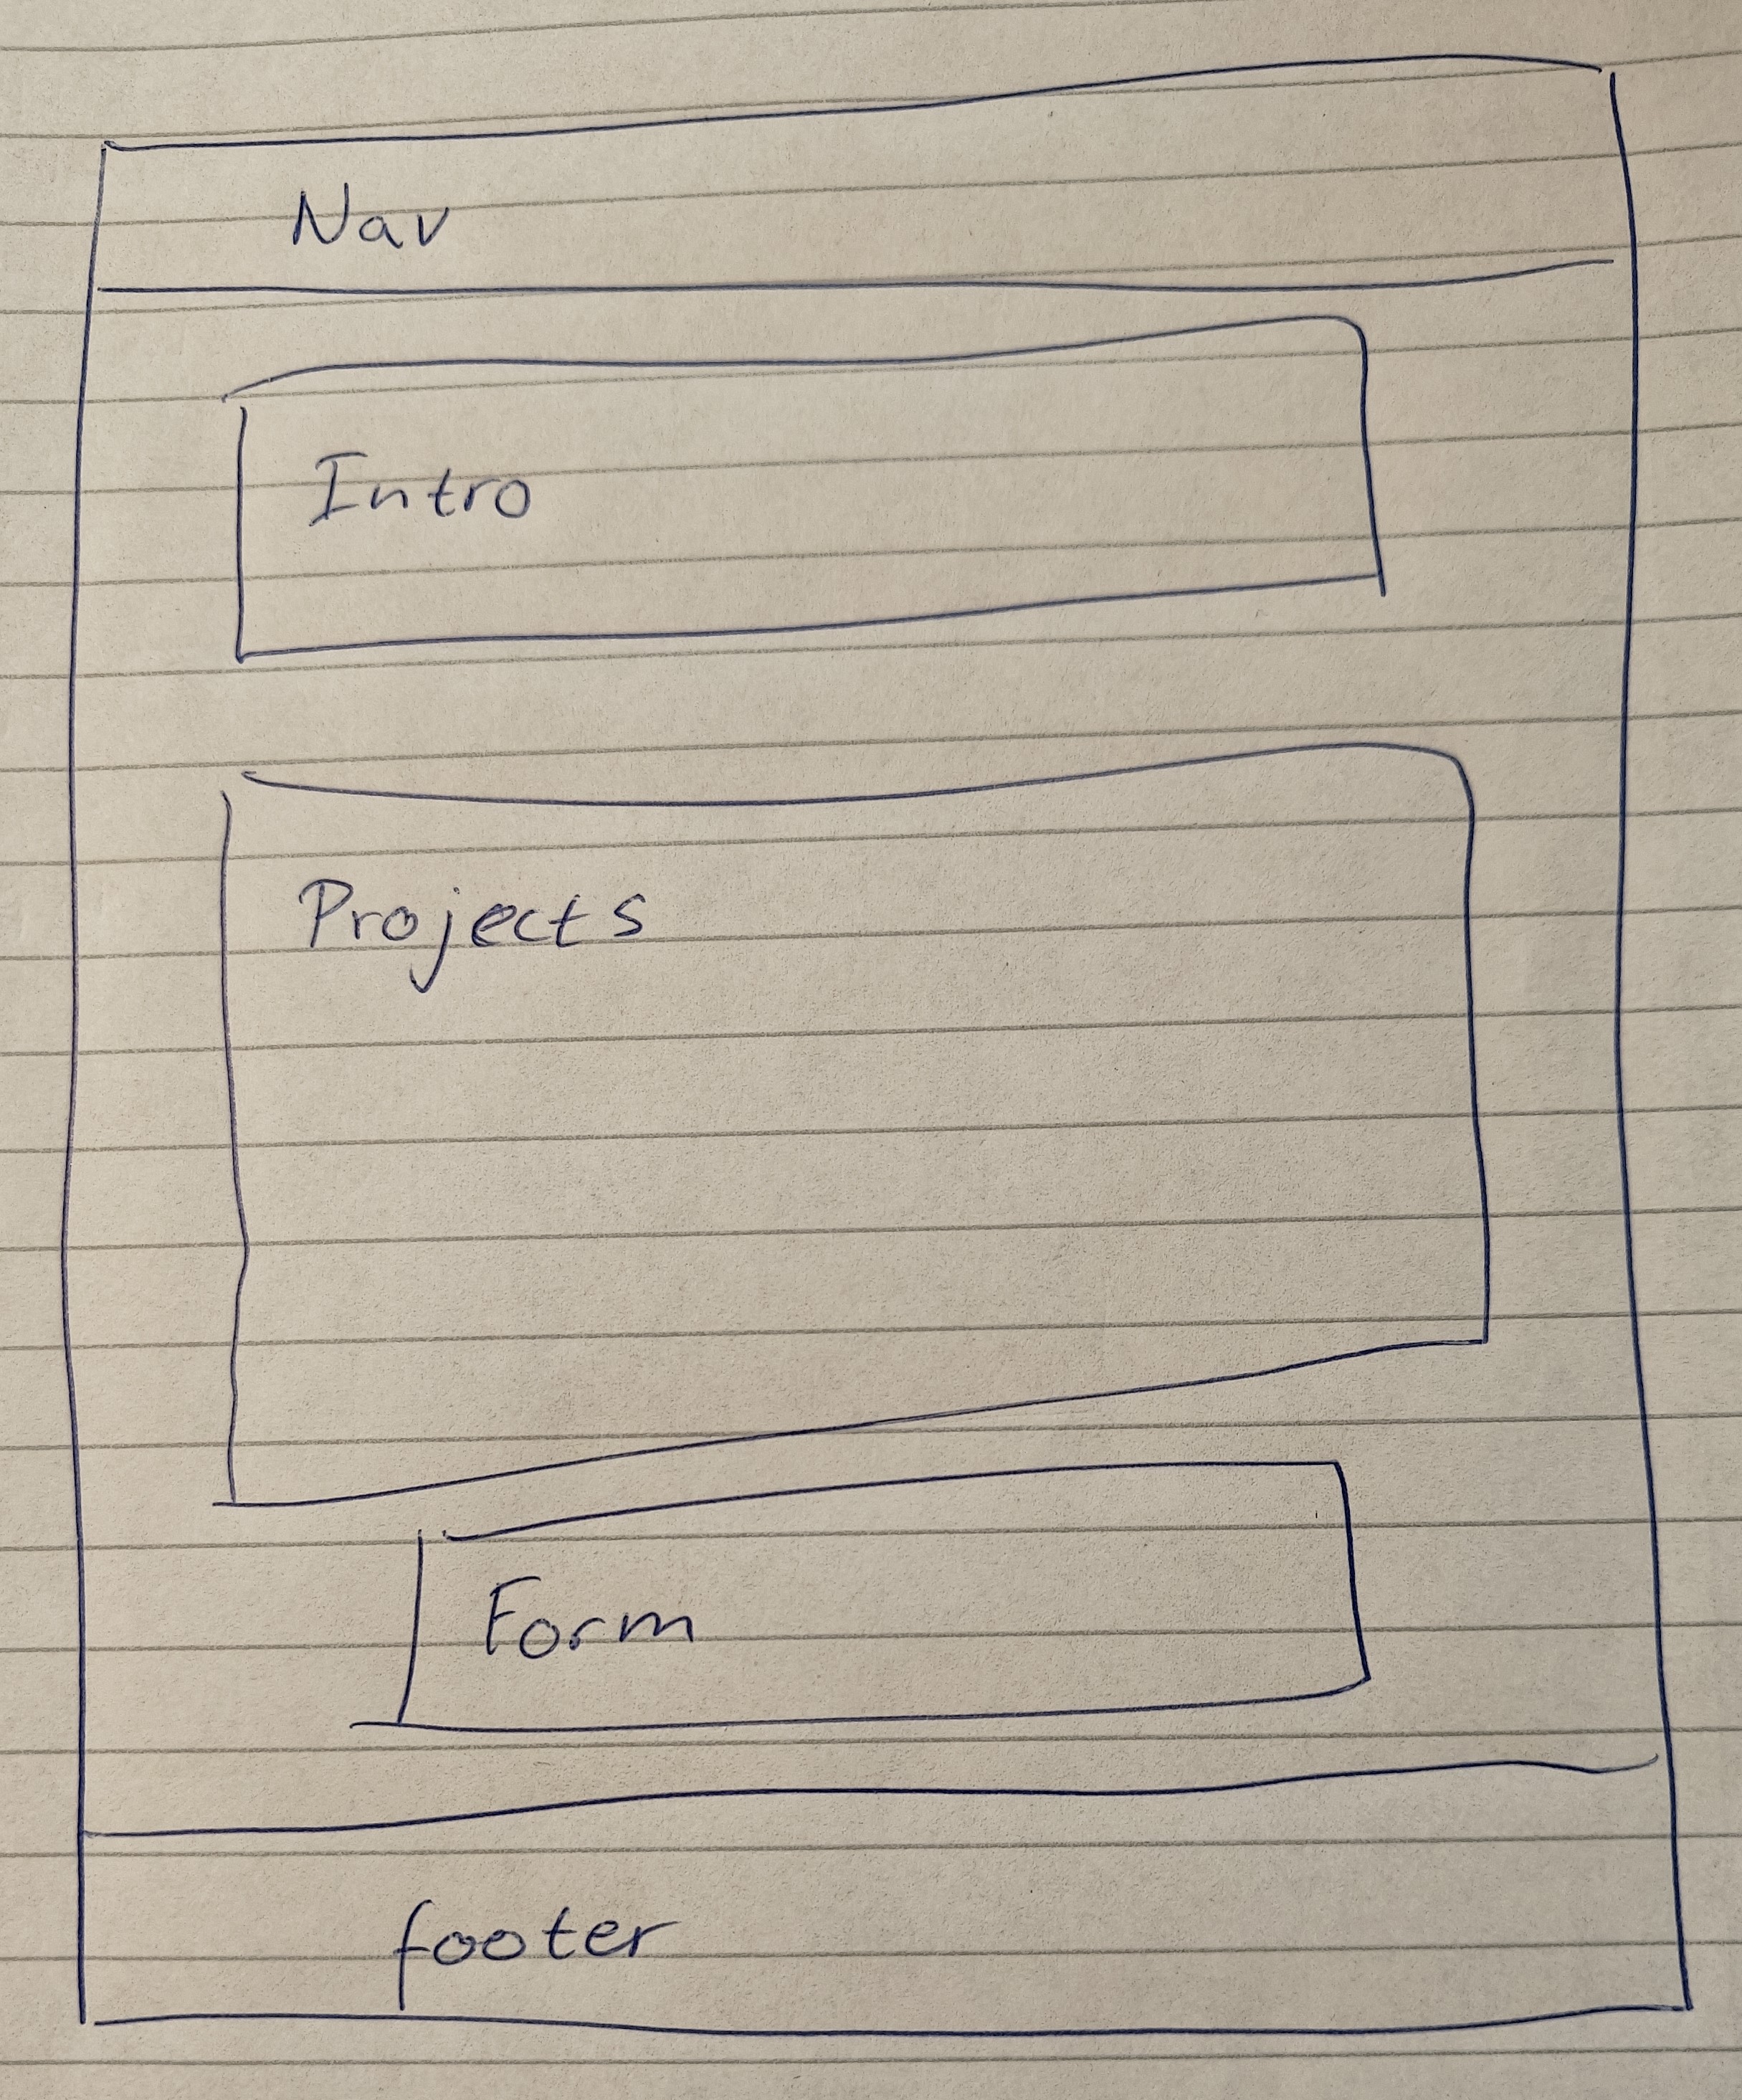 Nav
Intro
Projects
Form
footer